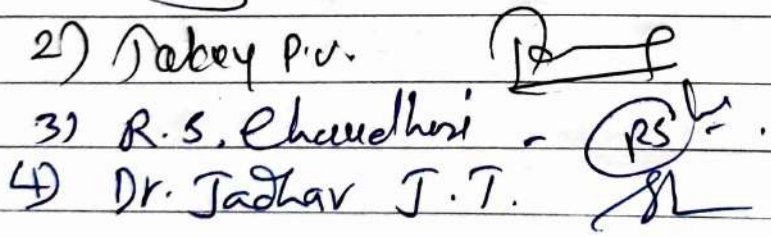 2) Jabey P.V.
3) R.S. Chaudhari - RS
4) Dr. Jadhav J.T.